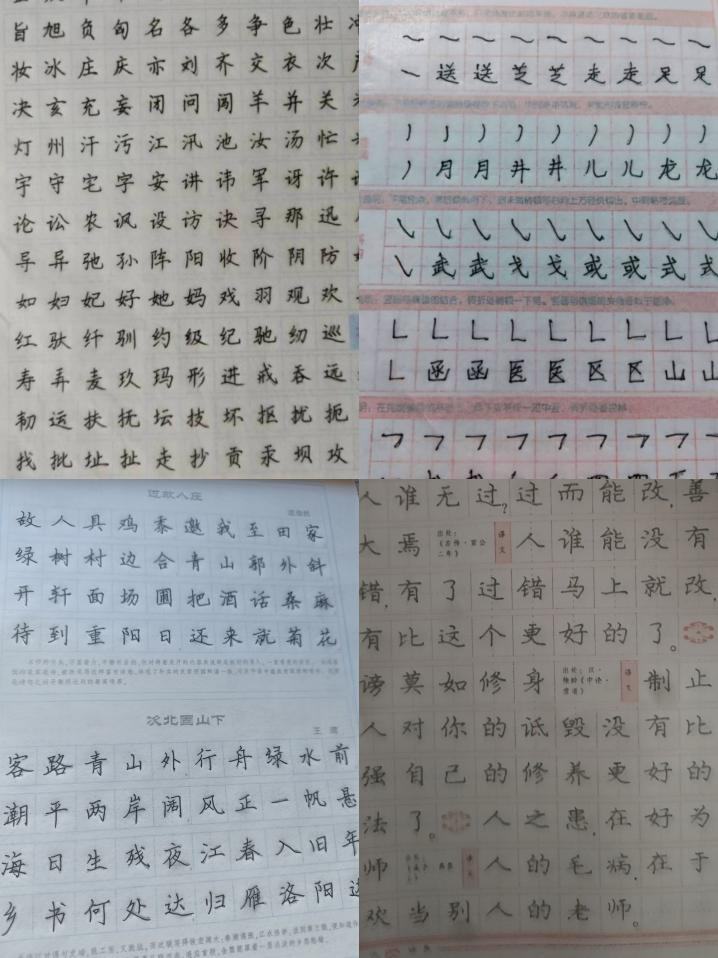 旨旭负匈名各多争色壮冲
妆冰庄庆亦刘齐交衣次
决亥充妄闭问闯羊并关
灯州汗污江汛池汝汤忙
宇守宅字安讲讳军讶许
论讼农讽设访诀寻那迅
导异弛孙阵阳收阶阴防
如妇妃好她妈戏羽观欢
红驮纤驯约级纪驰纫巡
寿弄麦玖玛形进戒吞远
韧运扶抚坛技坏抠扰扼
找批址扯走抄贡汞坝攻
送送芝芝走走足足
丿月月井井儿儿龙龙
武武戈戈或或式式
函函医医区区山山
过故人庄
孟浩然
故人具鸡黍邀我至田家
绿树村边合青山郭外斜
开轩面场圃把酒话桑麻
待到重阳日还来就菊花
次北固山下
王湾
客路青山外行舟绿水前
潮平两岸阔风正一帆悬
海日生残夜江春入旧年
乡书何处达归雁洛阳边
人谁无过?过而能改,善
大焉 出处:《左传·宣公二年》 译文 人谁能没有
错,有了过错马上就改,
有比这个更好的了。
谤莫如修身 译文 制止
人对你的诋毁没有比
强自己的修养更好的
法了。人之患,在好为
师 译文 人的毛病,在于
欢当别人的老师。